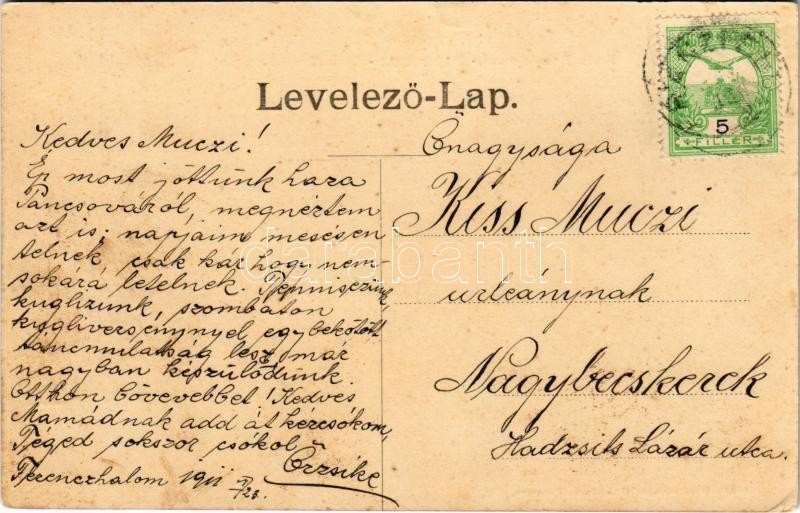 Levelező-Lap.
Kedves Muczi!
Ép most jöttünk haza
Pancsováról, megnéztem
azt is; napjaim mesésen
telnek, csak kár hogy nem-
sokára letelnek. Tenniszezünk,
kuglizunk, szombaton
kugliversennyel egybekötött
táncmulatság lesz, már
nagyban készülődünk.
Otthon bővebbet! Kedves
Mamádnak add át kézcsókom,
Téged sokszor csókol
Erzsike
Ferenczhalom 1911
Őnagysága
Kiss Muczi
urleánynak
Nagybecskerek
Hadzsits Lázár utca.
5
FILLÉR
darabanth